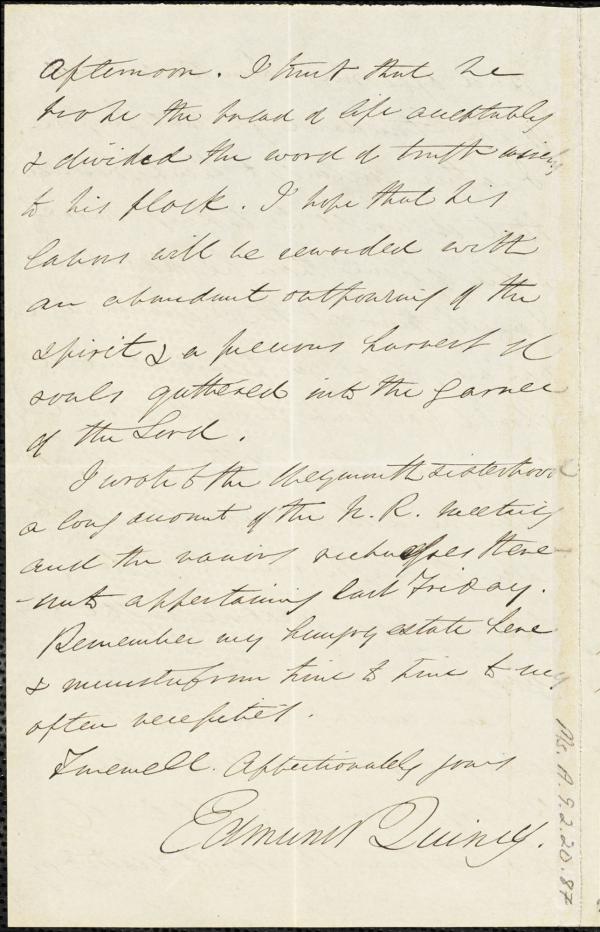 afternoon. I trust that he
broke the bread of life acceptably
& divided the word of truth wisely
to his flock. I hope that his
labors will be rewarded with
an abundant outpouring of the
spirit & a precious harvest of
souls guthered into the garner
of the Lord.
I wrote to the Weymouth sisterhood
a long account of the N. R. meeting
and the various there-
-unto appertaining last Friday.
Remember my hungry estate here
& minister from time to time to my
often necessities.
Farewell. Affectionately yours
Edmund Quincy.
Ms. A. 9. 2. 20. 87